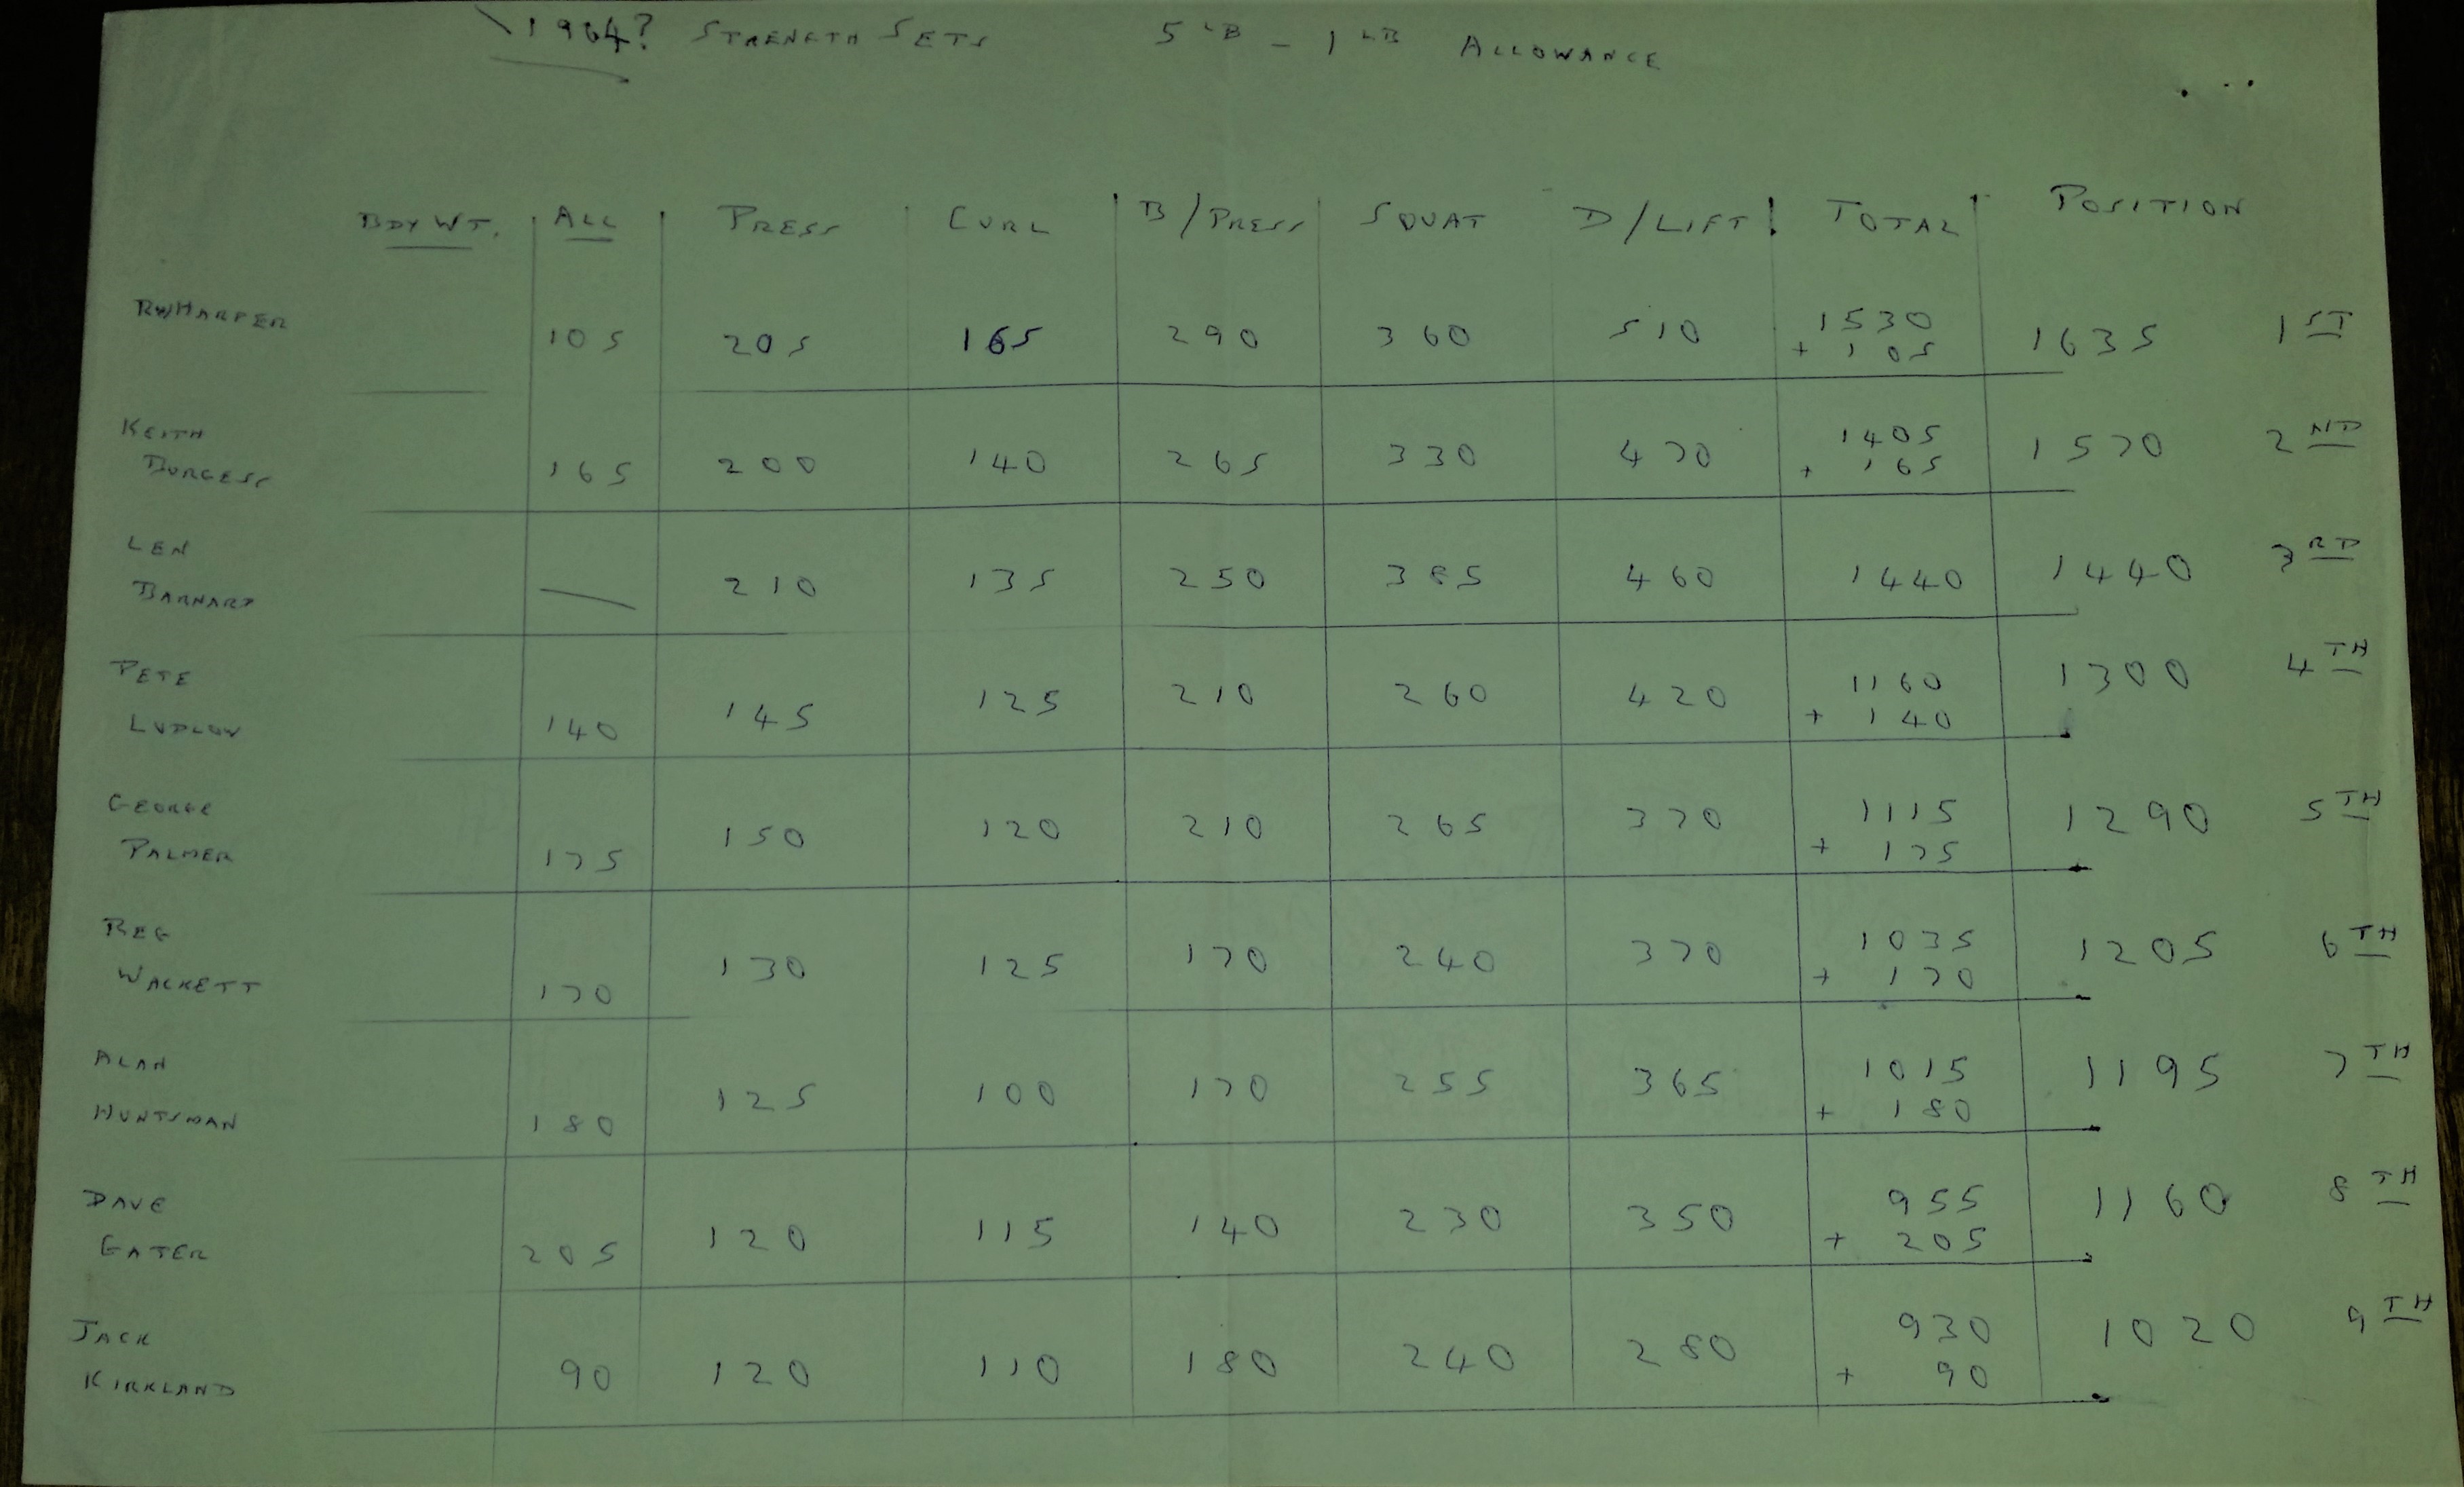 1964? STRENGTH SETS 5 LB - 1 LB ALLOWANCE
BDY WT. ALL PRESS CURL B/PRESS SQUAT D/LIFT TOTAL POSITION
RWHARPER 105 205 165 290 360 510 1530 + 105 1635 1ST
KEITH BURGESS 165 200 140 265 330 470 1405 + 165 1570 2ND
LEN BARNARD — 210 135 250 385 460 1440 1440 3RD
PETE LUDLOW 140 145 125 210 260 420 1160 + 140 1300 4TH
GEORGE PALMER 175 150 120 210 265 370 1115 + 175 1290 5TH
REG WACKETT 170 130 125 170 240 370 1035 + 170 1205 6TH
ALAN HUNTSMAN 180 125 100 170 255 365 1015 + 180 1195 7TH
DAVE GATER 205 120 115 140 230 350 955 + 205 1160 8TH
JACK KIRKLAND 90 120 110 180 240 280 930 + 90 1020 9TH